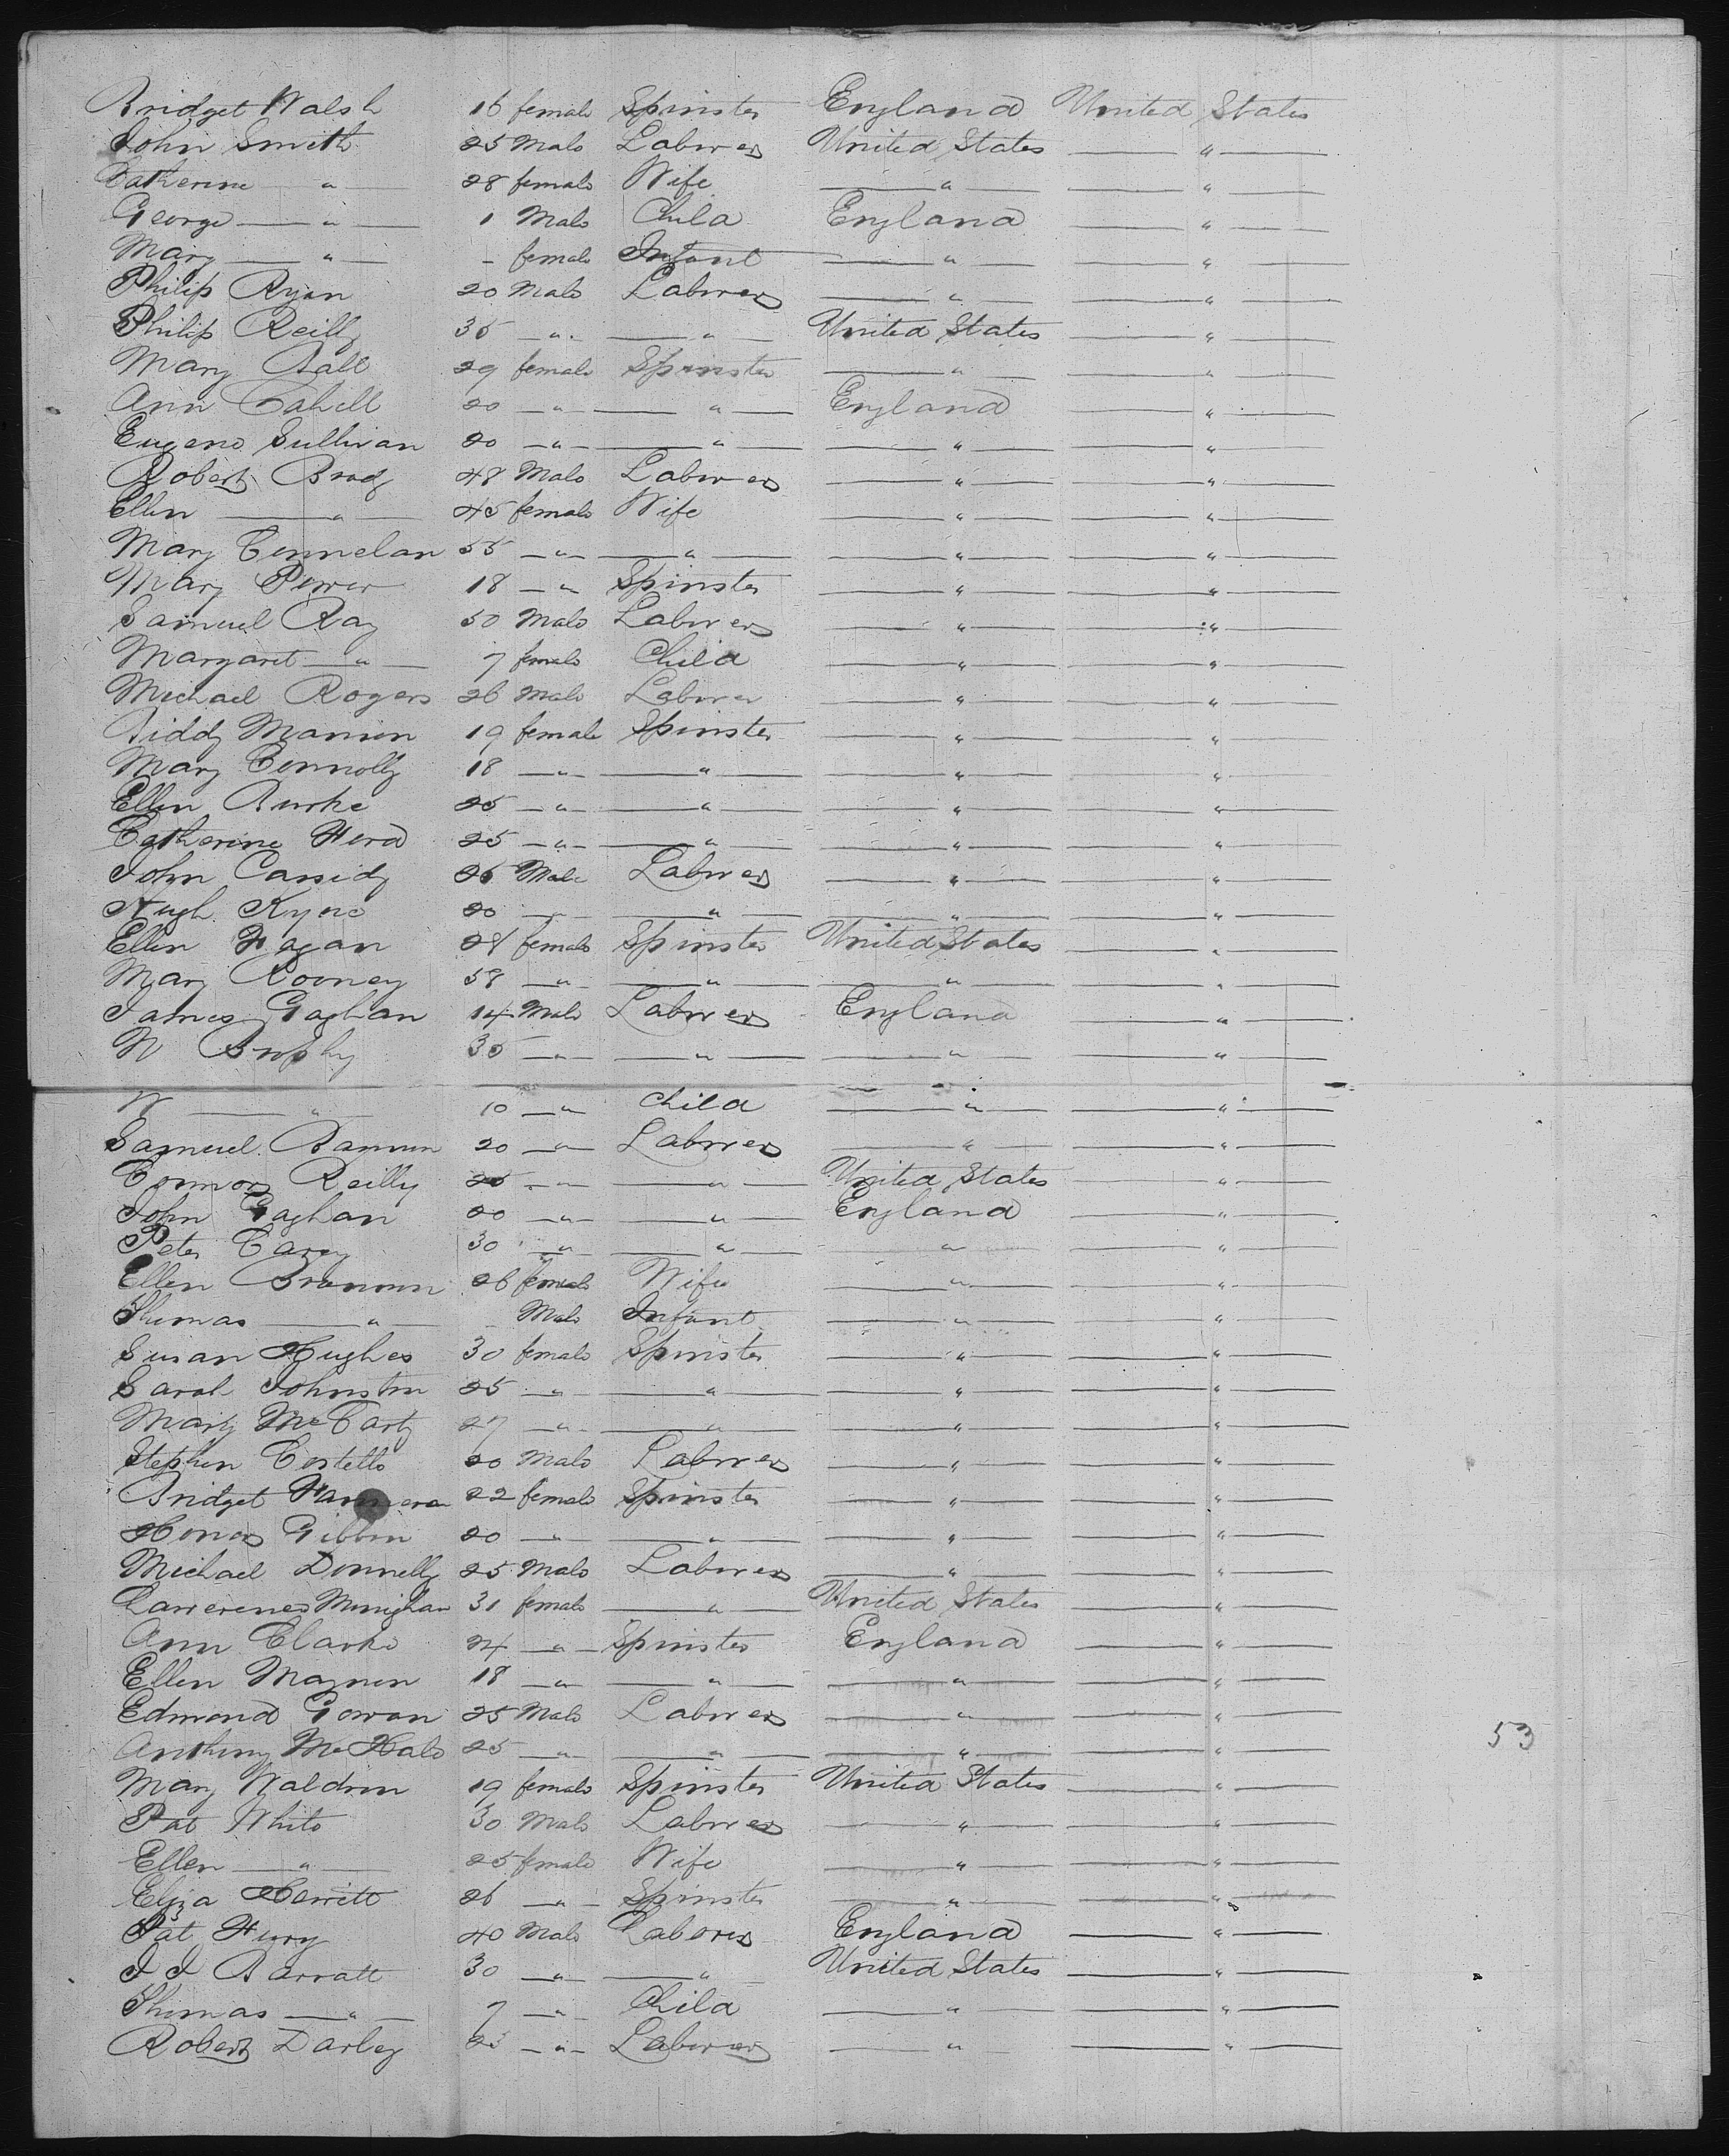 Bridget Walsh 16 female Spinster England United States
John Smith 25 Male Laborer United States — " —
Catherine — " — 28 female Wife — " — — " —
George — " — 1 Male Child England — " —
Mary — " — - female Infant — " — — " —
Philip Ryan 20 Male Laborer — " — — " —
Philip Reilly 35 — " — — " — United States — " —
Mary Ball 29 female Spinster — " — — " —
Ann Cahill 20 — " — — " — England — " —
Eugene Sullivan 20 — " — — " — — " — — " —
Robert Brady 48 Male Laborer — " — — " —
Ellen — " — 45 female Wife — " — — " —
Mary Connelan 55 — " — — " — — " — — " —
Mary Power 18 — " Spinster — " — — " —
Samuel Ray 50 Male Laborer — " — — " —
Margaret — " — 7 female Child — " — — " —
Michael Rogers 26 Male Laborer — " — — " —
Biddy Mannion 19 female Spinster — " — — " —
Mary Connolly 18 — " — — " — — " — — " —
Ellen Burke 25 — " — — " — — " — — " —
Catherine Ford 25 — " — — " — — " — — " —
John Cassidy 26 Male Laborer — " — — " —
Hugh 20 — — " — — " — — " —
Ellen Fagan female Spinster United States — " —
Mary Rooney 58 — " — — " — — " — — " —
James Gaghan 14 Male Laborer England — " —
W Brophy 35 — " — — " — — " — — " —
W — " — 10 — " Child — " — — " —
Samuel Bannon 20 — " — Laborer — " — — " —
Connor Reilly 25 — " — — " — United States — " —
John Gaghan 20 — " — — " — England — " —
Peter Carey 30 — " — — " — " — " —
Ellen Brannon 26 female Wife — " — — " —
Thomas — " — - Male Infant — " — — " —
Susan Hughes 30 female Spinster — " — — " —
Sarah Johnston 25 — " — — " — — " — — " —
Mary McCarty 27 — " — — " — — " — — " —
Stephen Costello 20 Male Laborer — " — — " —
Bridget 22 female Spinster — " — — " —
Honor Gibbon 20 — " — — " — — " — — " —
Michael Donnelly 25 Male Laborer — " — — " —
31 female — " — United States — " —
Ann Clarke 24 — " — Spinster England — " —
Ellen Magnon 18 — " — — " — — " — — " —
Edmond Gowan 25 Male Laborer — " — — " —
Anthony McHale 25 — " — — " — — " — — " —
53
Mary Waldron 19 female Spinster United States — " —
Pat White 30 Male Laborer — " — — " —
Ellen — " — 25 female Wife — " — — " —
Eliza Hewitt 26 — " — Spinster — " — — " —
Pat Fury 40 Male Laborer England — " —
J J Barratt 30 — " — — " — United States — " —
Thomas — " — 7 — " — Child — " — — " —
Robert Darley — " — Laborer — " — — " —